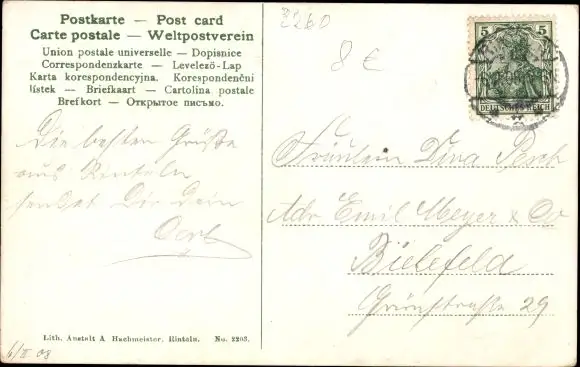 Postkarte — Post card
Carte postale — Weltpostverein
Union postale universelle — Dopisnice
Correspondenzkarte — Levelező-Lap
Karta korespondencyjna. Korespondenční
lístek — Briefkaart — Cartolina postale
Brefkort — Открытое письмо.
2260
8 €
5 5
DEUTSCHES REICH
Die besten Grüße
aus Rinteln
sendet Dir Dein
Fräulein
Adr. Emil Meyer & Co
Bielefeld
29
Lith. Anstalt A Hachmeister. Rinteln. No. 2203.
6/II 08